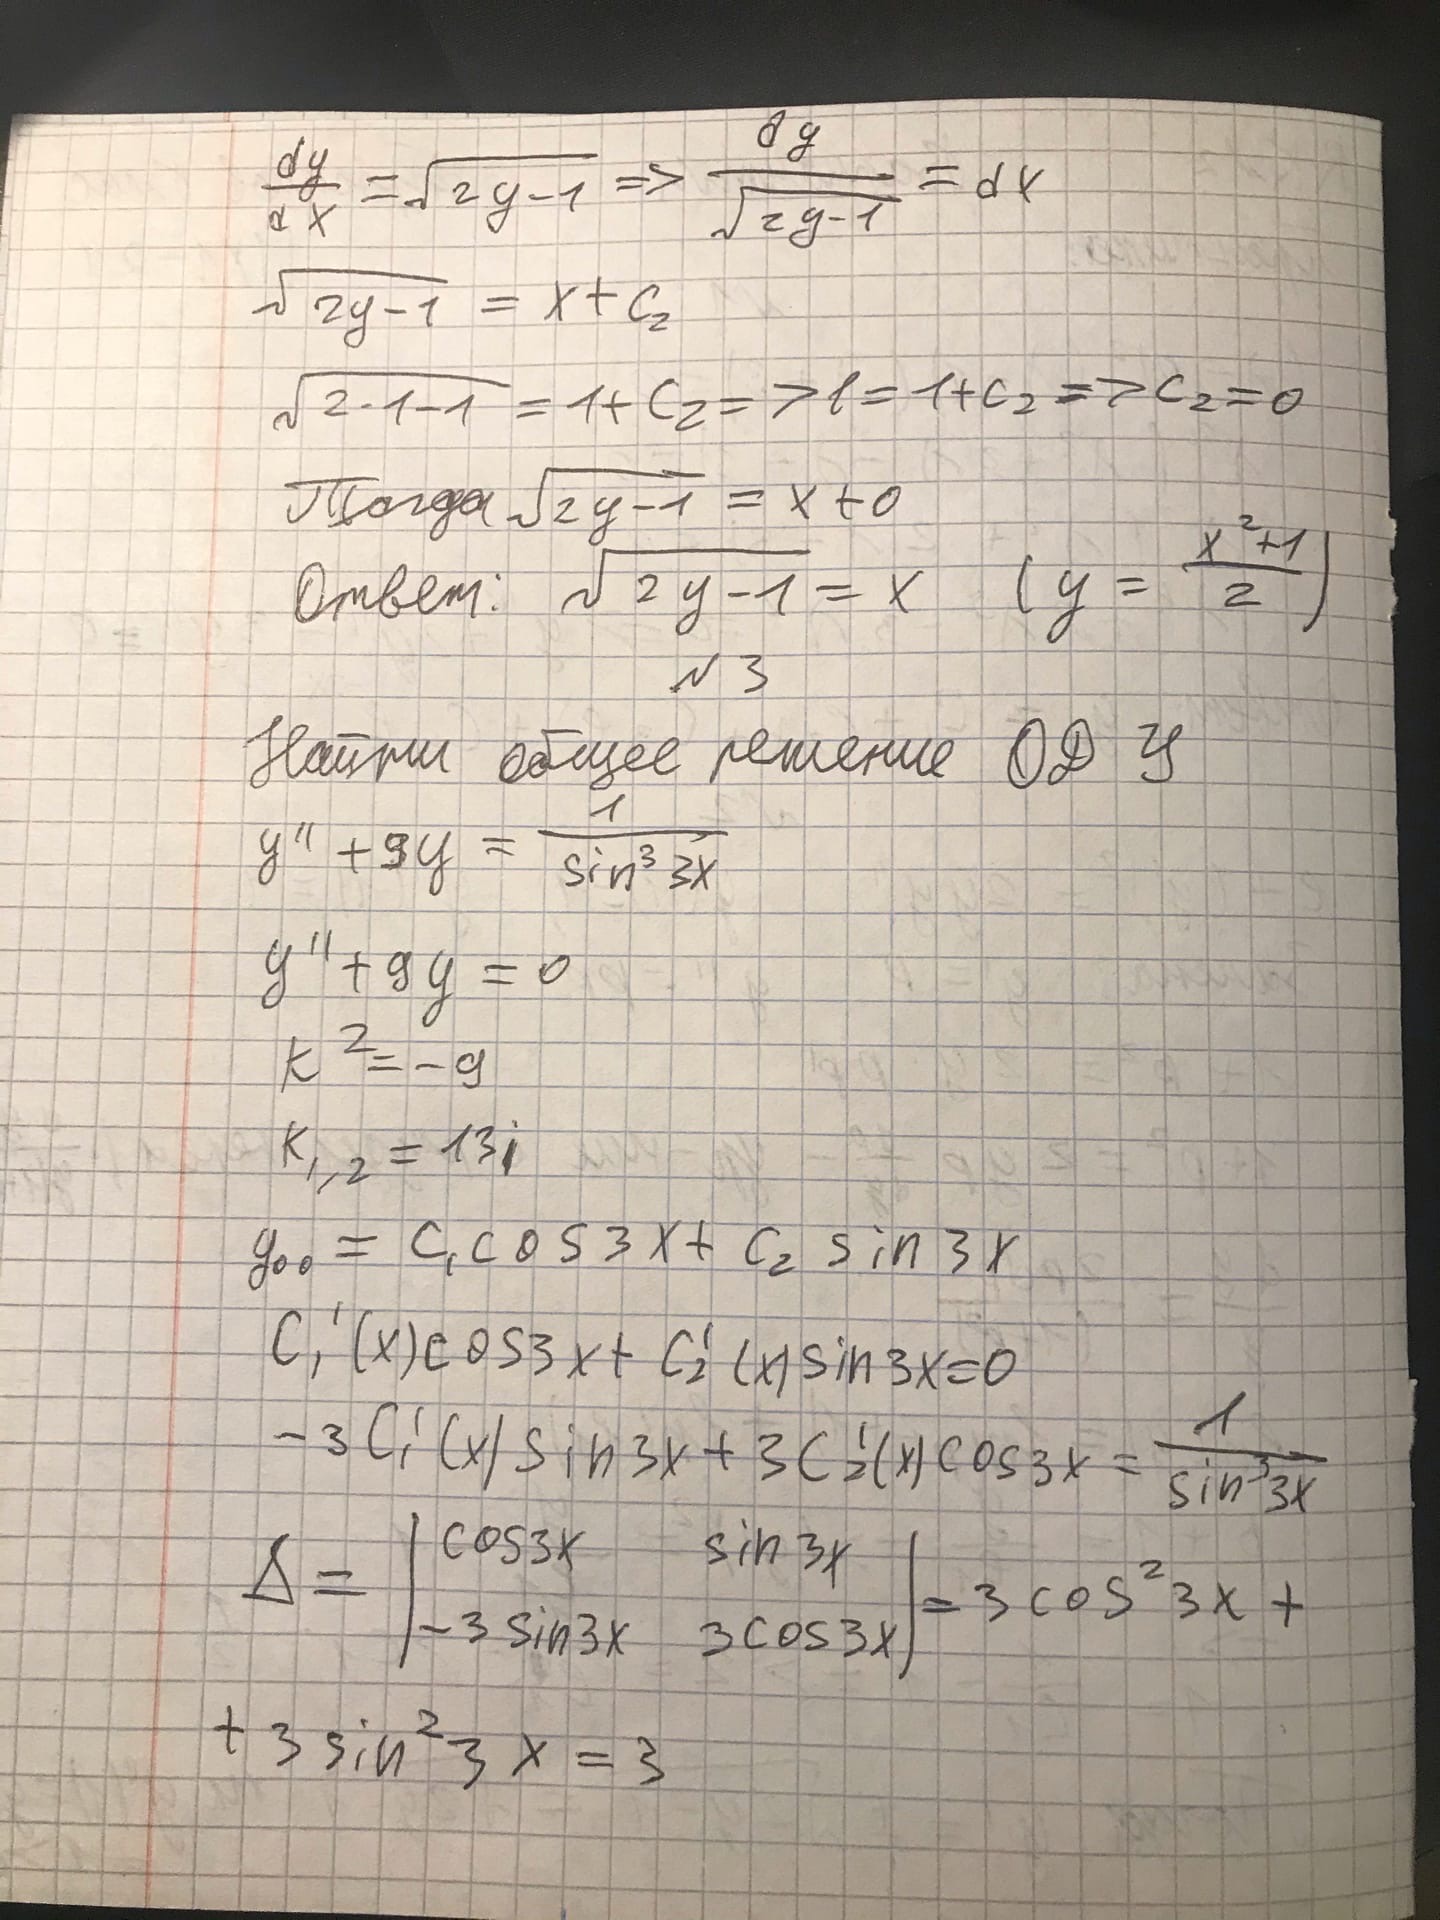 dy/dx = √(2y-1) => dy/√(2y-1) = dx
√(2y-1) = x + C₂
√(2·1-1) = 1 + C₂ => 1 = 1 + C₂ => C₂ = 0
Тогда √(2y-1) = x + 0
Ответ: √(2y-1) = x (y = (x²+1)/2)
№3
Найти общее решение ОДУ
y'' + 9y = 1/sin³3x
y'' + 9y = 0
k² = -9
k₁,₂ = 13i
y₀₀ = C₁cos3x + C₂ sin3x
C₁'(x)cos3x + C₂'(x)sin3x = 0
-3C₁'(x)sin3x + 3C₂'(x)cos3x = 1/sin³3x
Δ = |cos3x sin3x; -3sin3x 3cos3x| = 3cos²3x +
+ 3sin²3x = 3